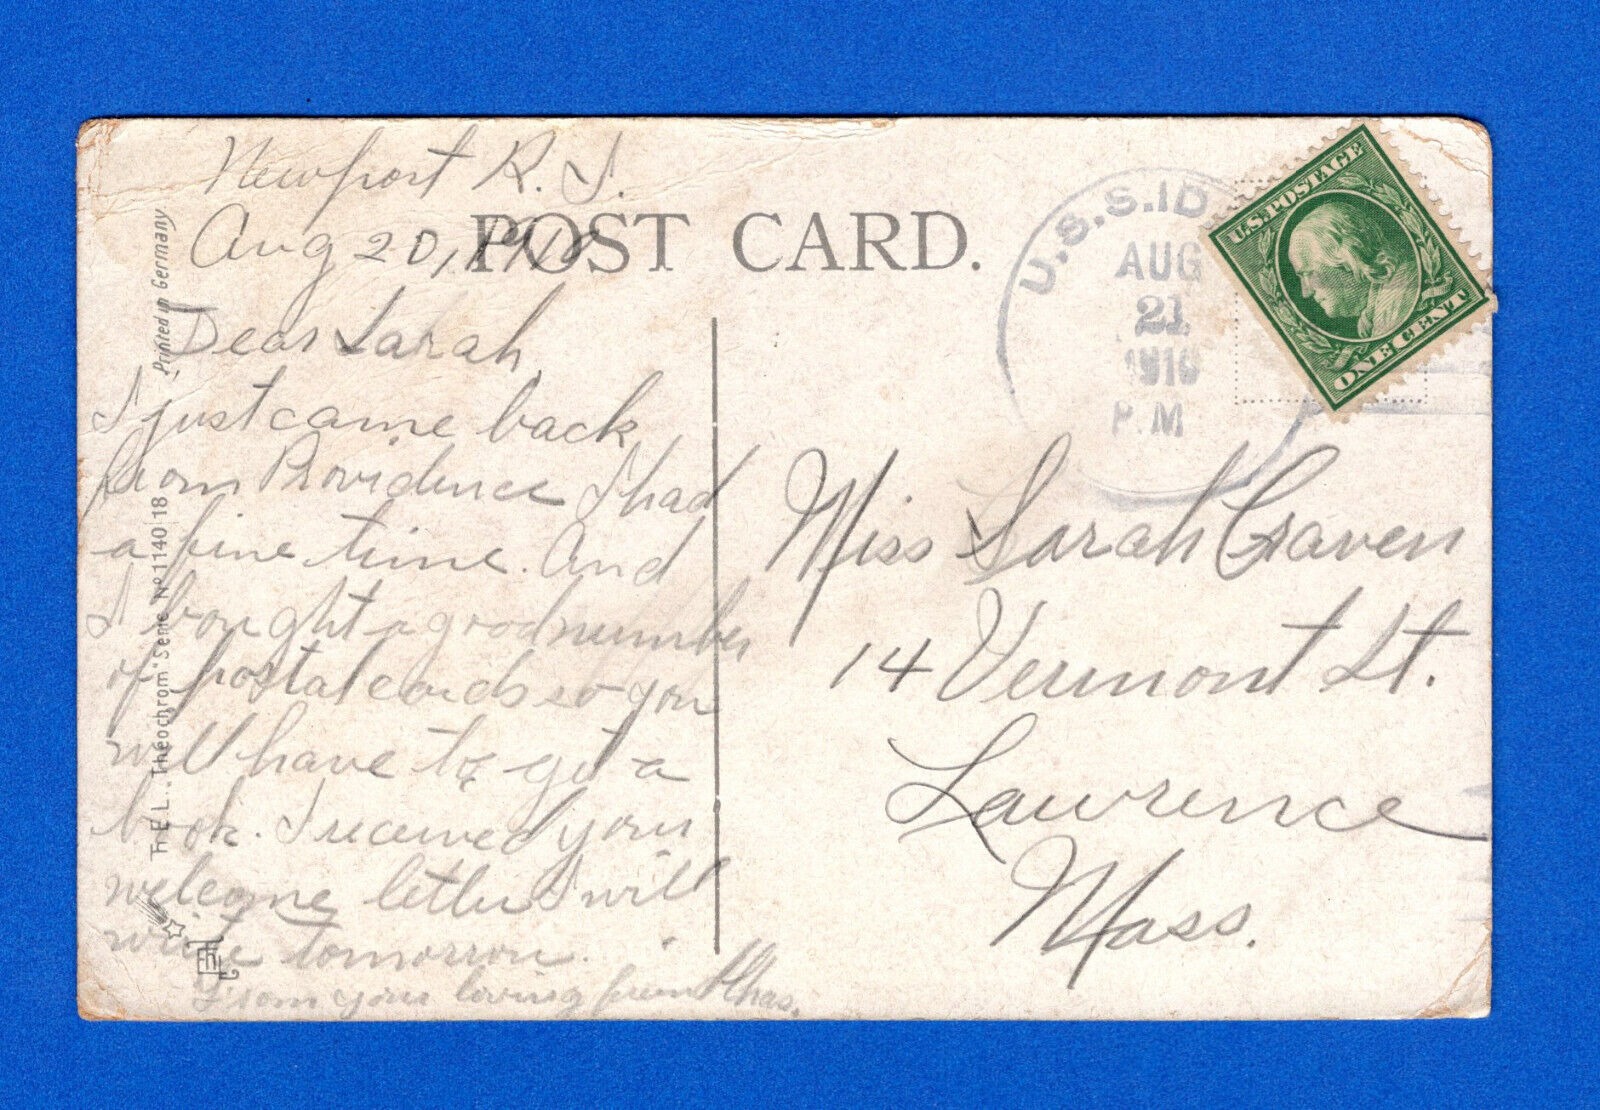 Newport R. I.
Aug 20, 1910
POST CARD.
Dear Sarah,
I just came back
from Providence I had
a fine time. And
I bought a good number
of postal cards so you
will have to get a
book. I received your
welcome letter I will
write tomorrow.
From your loving friend Chas.
Printed in Germany
T.E.L. „Theochrom" Serie Nº 1140 18
U.S.S. ID
AUG
21
1910
P.M
U.S. POSTAGE
ONE CENT
Miss Sarah Craven
14 Vermont St.
Lawrence
Mass.